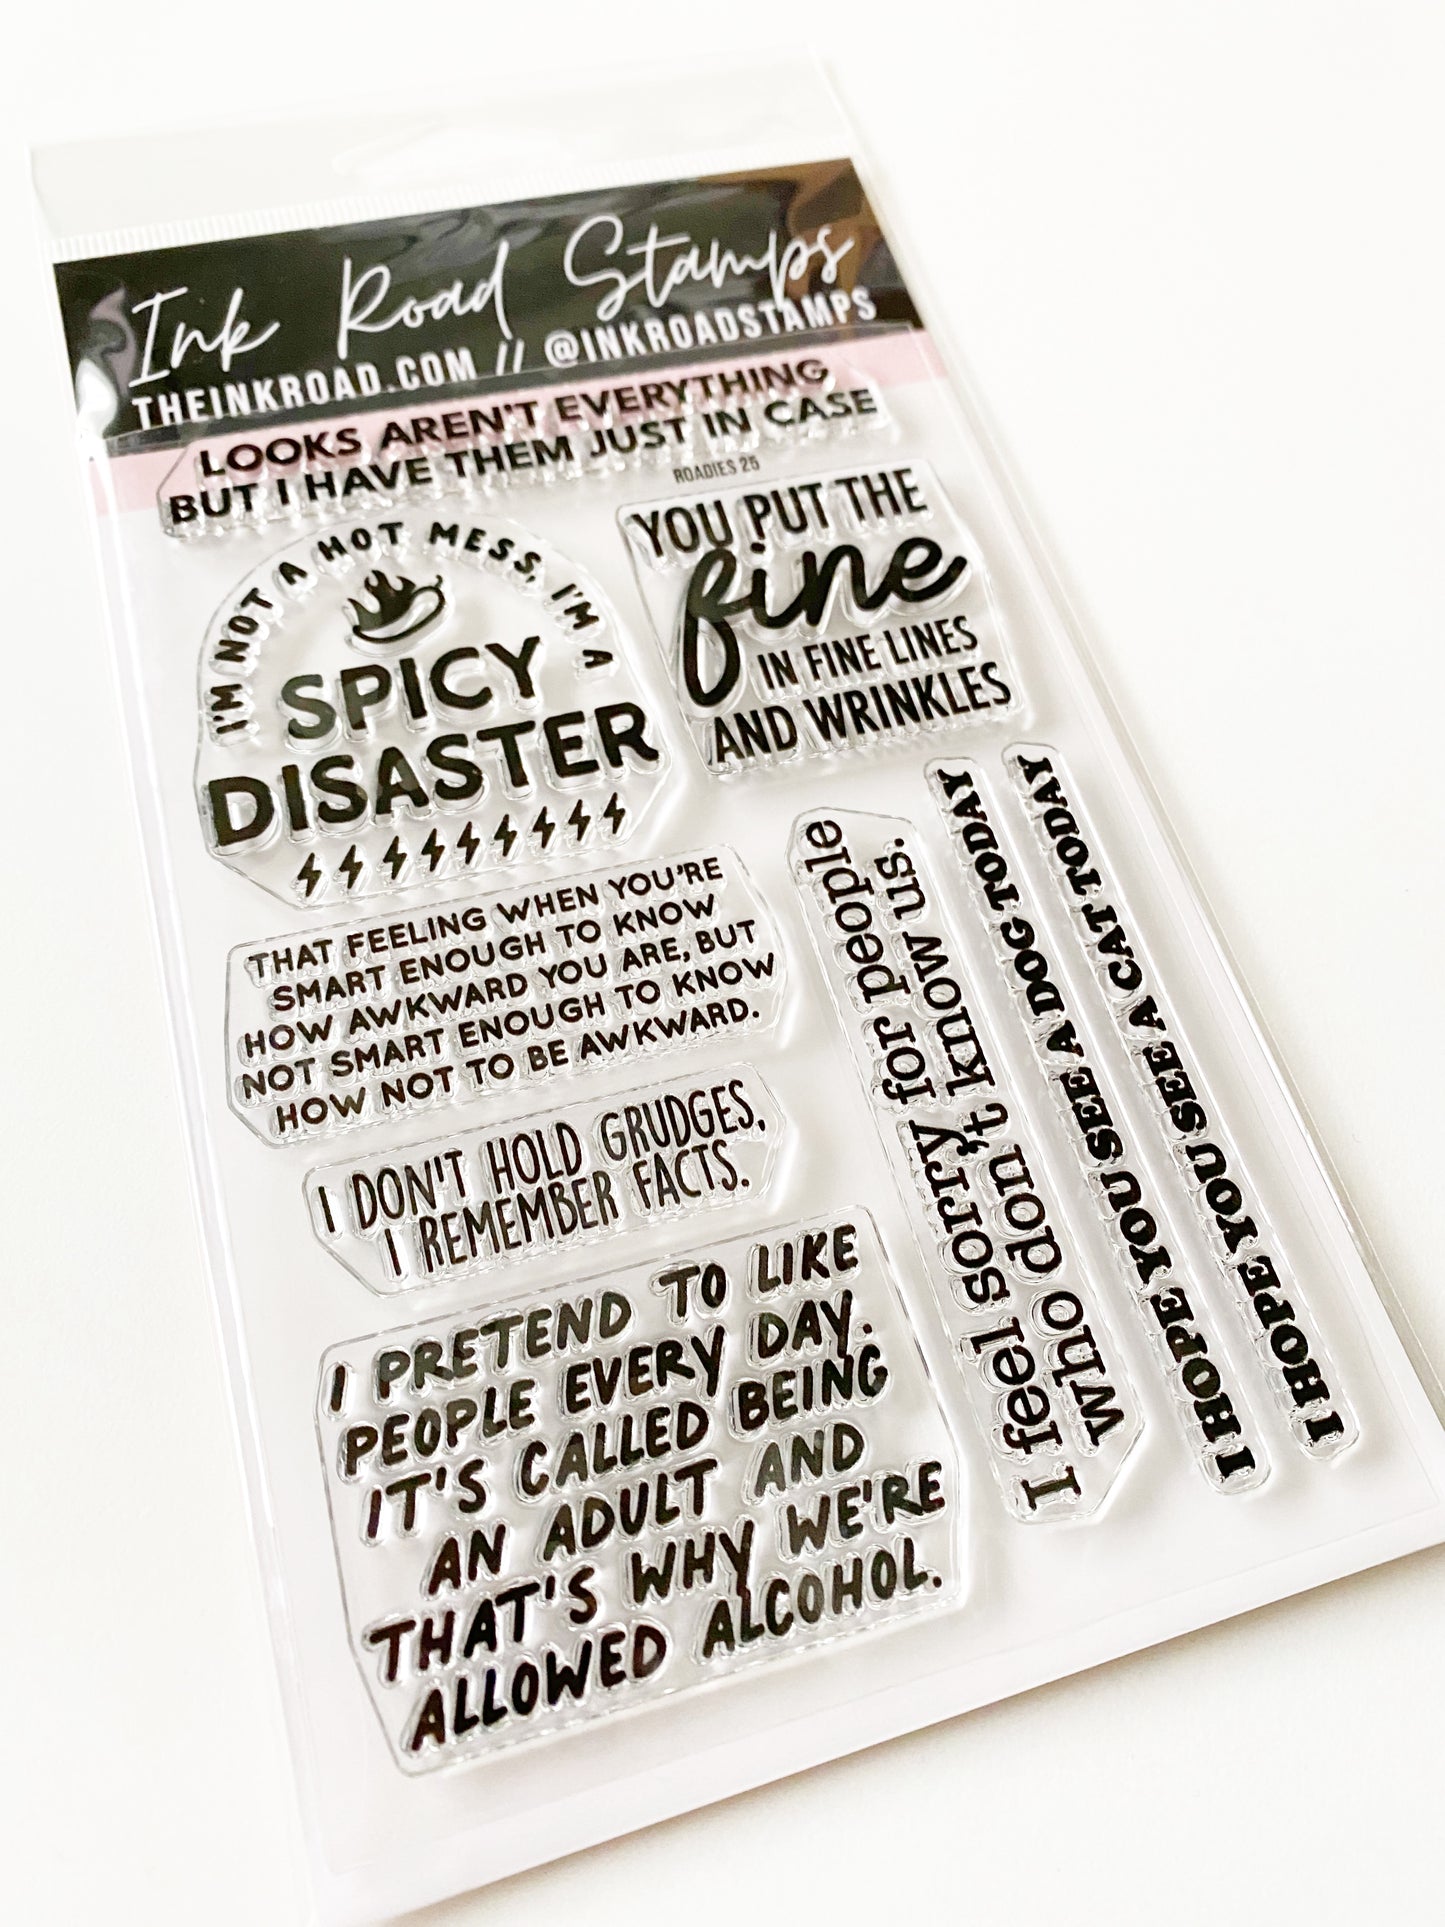 Ink Road Stamps
THEINKROAD.COM // @INKROADSTAMPS
LOOKS AREN'T EVERYTHING
BUT I HAVE THEM JUST IN CASE
ROADIES 25
I'M NOT A HOT MESS, I'M A
SPICY
DISASTER
YOU PUT THE
fine
IN FINE LINES
AND WRINKLES
THAT FEELING WHEN YOU'RE
SMART ENOUGH TO KNOW
HOW AWKWARD YOU ARE, BUT
NOT SMART ENOUGH TO KNOW
HOW NOT TO BE AWKWARD.
I DON'T HOLD GRUDGES,
I REMEMBER FACTS.
I PRETEND TO LIKE
PEOPLE EVERY DAY.
IT'S CALLED BEING
AN ADULT AND
THAT'S WHY WE'RE
ALLOWED ALCOHOL.
I feel sorry for people
who don't know us.
I HOPE YOU SEE A DOG TODAY
I HOPE YOU SEE A CAT TODAY